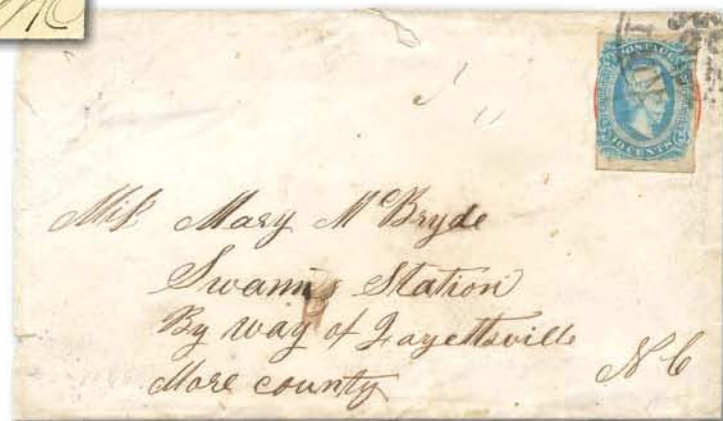 POSTAGE
10 CENTS
Miss Mary McBryde
Swann's Station
By way of Fayettsville
More county
N C